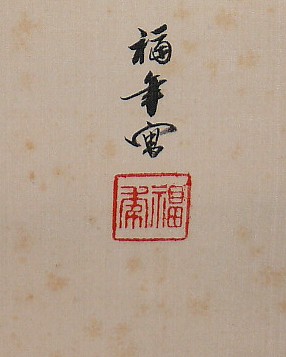 福年寫
福年